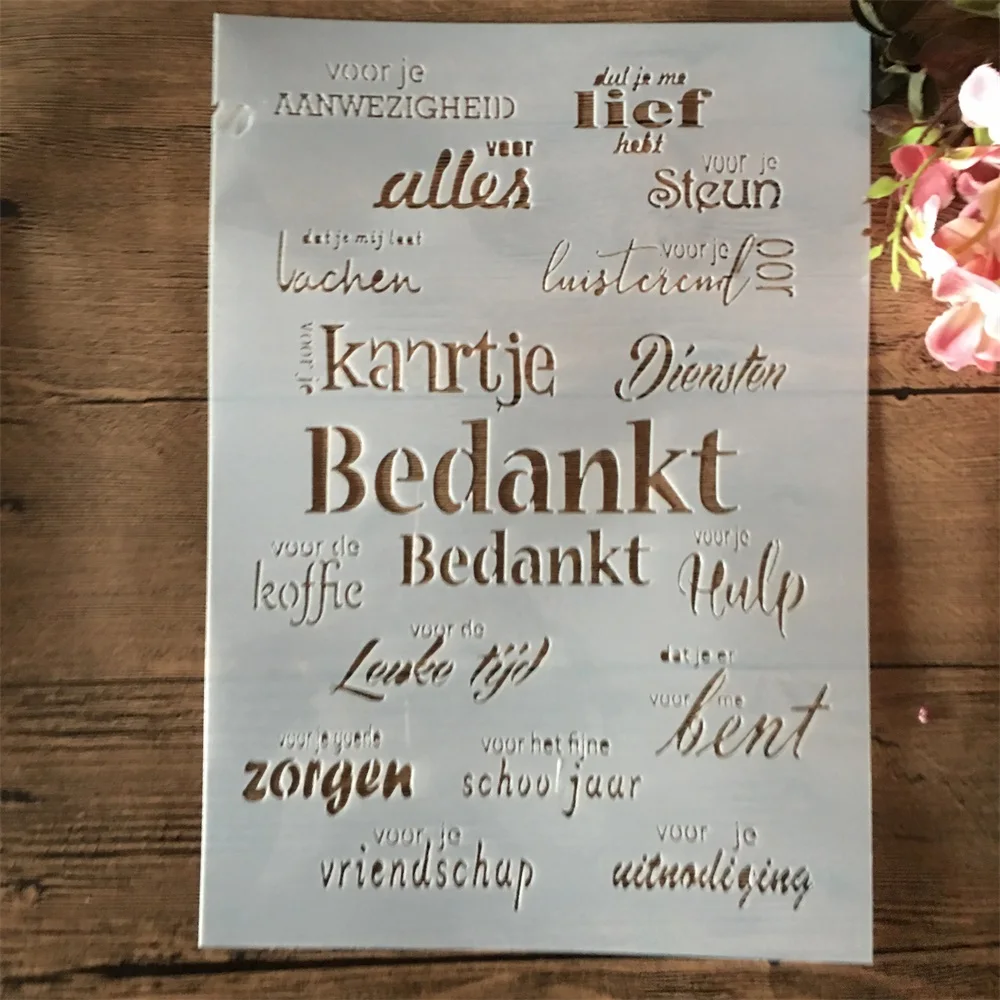 voor je
AANWEZIGHEID
dat je me
lief
hebt
voor
alles
voor je
Steun
dat je mij laat
Lachen
voor je
luisterend
oor
voor je
kaartje
Diensten
Bedankt
voor de
koffie
Bedankt
voor je
Hulp
voor de
Leuke tijd
dat je er
voor me
bent
voor je goede
zorgen
voor het fijne
schooljaar
voor je
vriendschap
voor je
uitnodiging